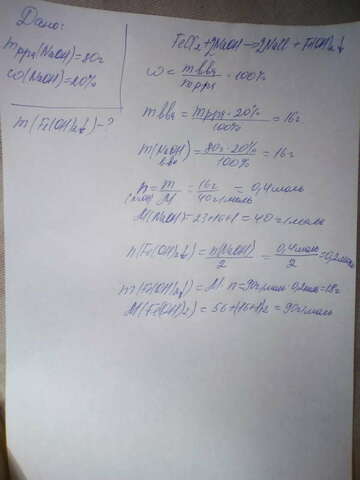 Дано:
mр-ра(NaOH)=80г
ω(NaOH)=20%
m(Fe(OH)2↓)-?
FeCl2+2NaOH→2NaCl+Fe(OH)2↓
ω = mвва / mрра · 100%
mвва = mрра · 20% / 100% = 16г
m(NaOH)вва = 80г · 20% / 100% = 16г
n(NaOH) = m / M = 16г / 40г/моль = 0,4моль
M(NaOH)=23+16+1=40г/моль
n(Fe(OH)2↓)= n(NaOH) / 2 = 0,4моль / 2 =0,2моль
m(Fe(OH)2↓)=M·n=90г/моль·0,2моль=18г
M(Fe(OH)2)=56+(16+1)2=90г/моль